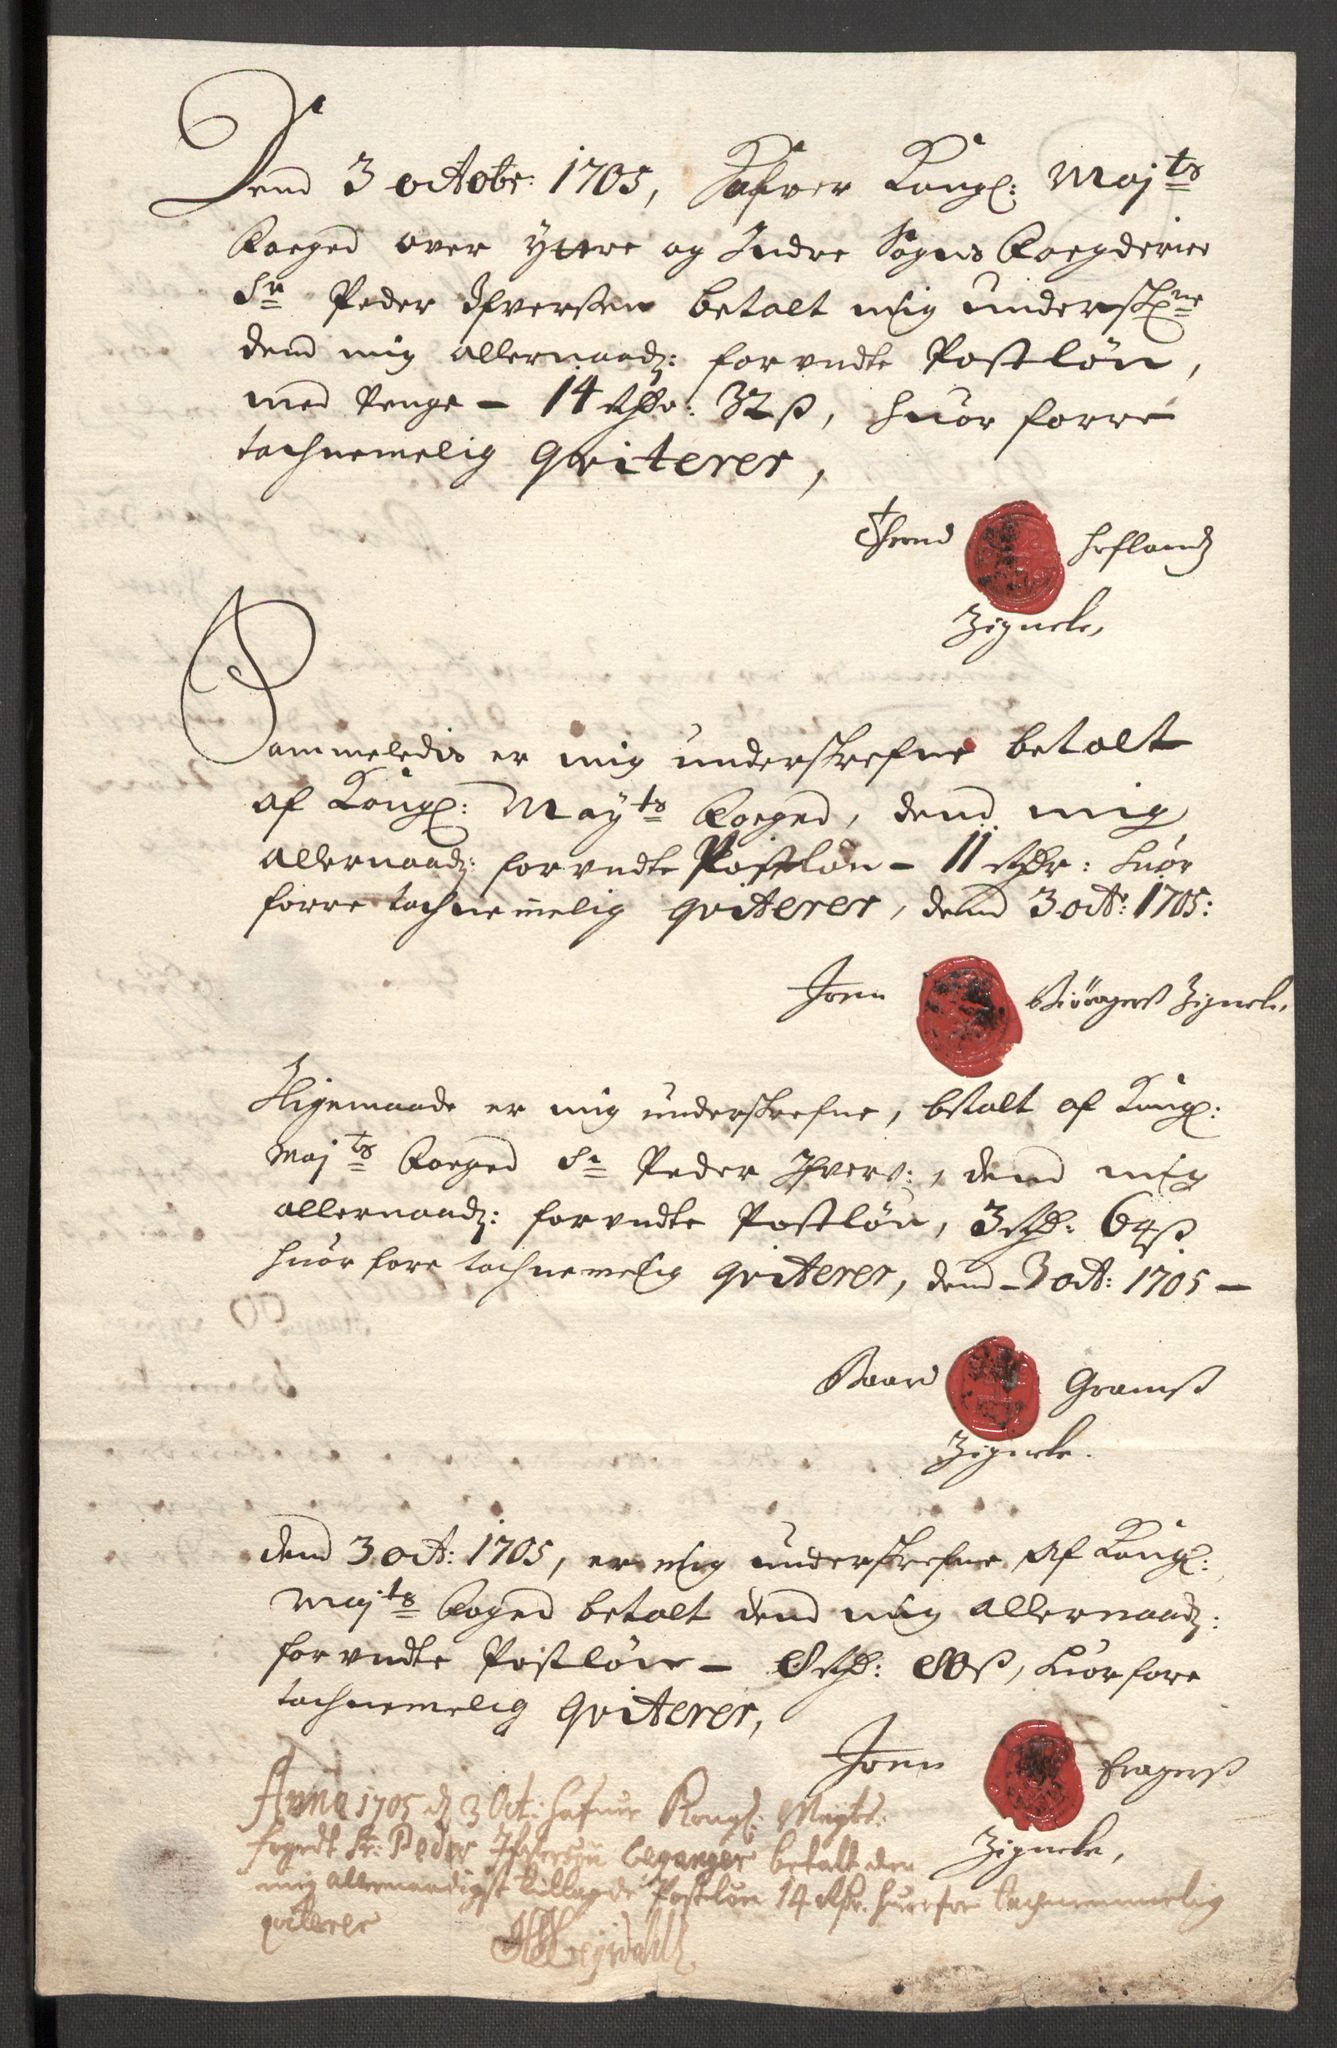 Dend 3 octobr: 1705, Hafver Kongl: Maj<sup>ts</sup>
Foeged over yttre og Indre Sogns Foegderier
S<sup>r</sup> Peder Ifversen betalt mig undersk<sup>ne</sup>
dend mig allernaadg: forundte Postløn,
med Penge – 14 Rdr: 32 ß, huor forre
tachnemelig qviterer,
Svend Hefland
Zignete,
Sammeledis er mig underskrefne betalt
af Kongl: May<sup>ts</sup> Foeged, dend mig
allernaadg: forundte Postløn – 11 Rdr: huor
forre tachnemelig qviterer, dend 3 oct: 1705:
Joen Zignete,
Ligemaade er mig underskrefne, betalt af Kongl:
Maj<sup>ts</sup> Foeged S<sup>r</sup> Peder Ifvers:, dend mig
allernaadg: forundte Postløn, 3 Rd: 64 ß
huorfore tachnemelig qviterer, dend – 3 oct: 1705 –
Baard Gramß
Zignete.
dend 3 oct: 1705, er mig underskrefne af Kongl:
Maj<sup>ts</sup> Foged betalt dend mig allernaadg:
forundte Postløn – 8 Rd: 80 ß, huorfore
tachnemelig qviterer,
Joen
Zignete,
Anno 1705 d 3 Oct: hafuer Kongl: Mayts:
fogedt Sr: Peder Ifversen Leganger betalt den
mig allernaadigst tillagde Postløn 14 Rdr. huorfor tachnemmelig
qviterer
Heyrdahl